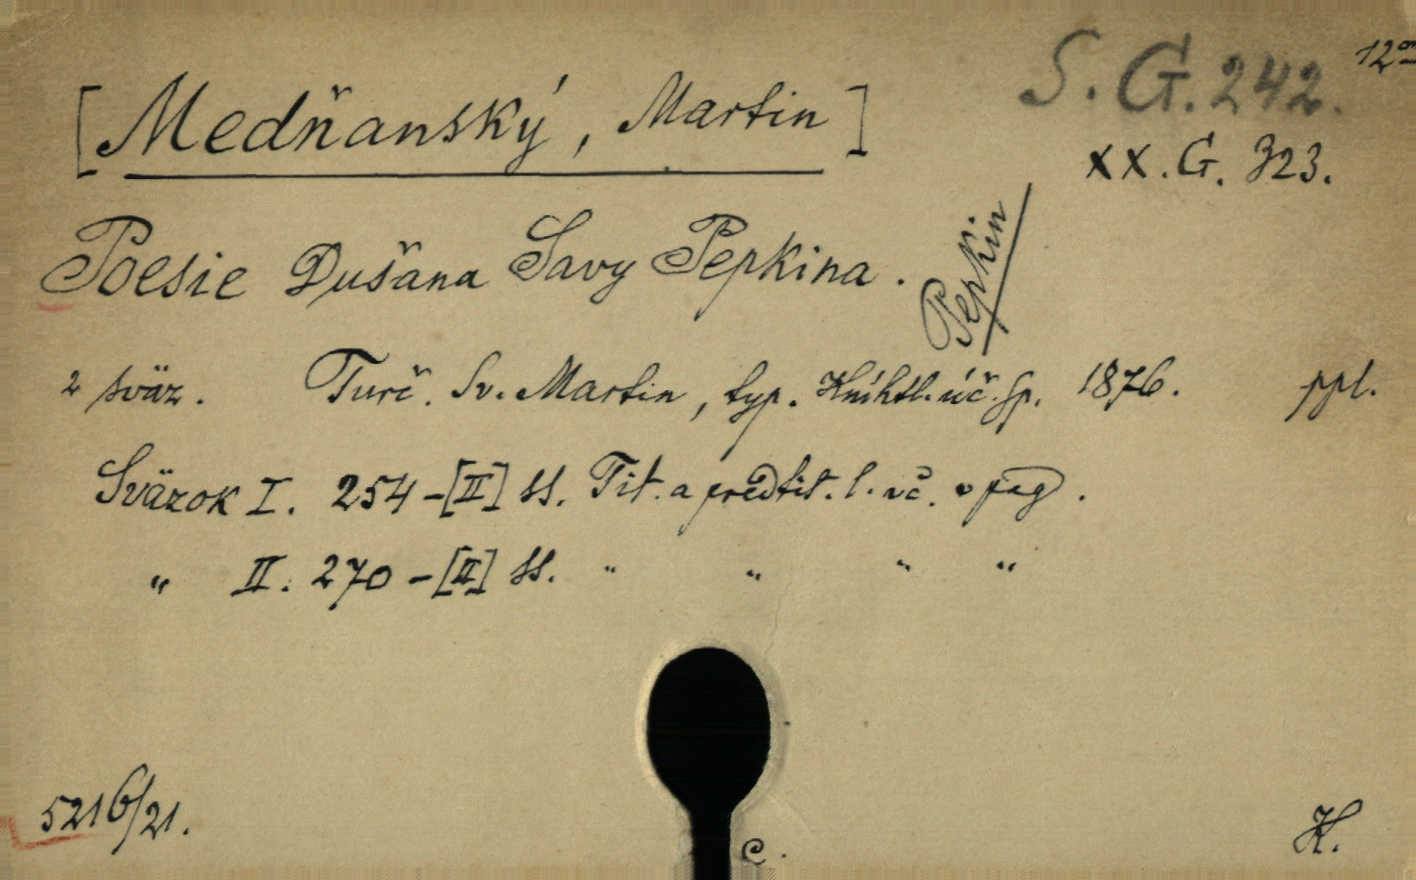 S. G. 242. 12°
[Medňanský, Martin]
XX. G. 323.
Poesie Dušana Savy Pepkina.
Pepkin
2 sväz. Turč. Sv. Martin, typ. Kníhtl. úč. sp. 1876. ppl.
Sväzok I. 254-[II] ss. Tit. a predtit. l. vč. v pag.
" II. 270-[II] ss. " " " "
5216/21.
c.
K.